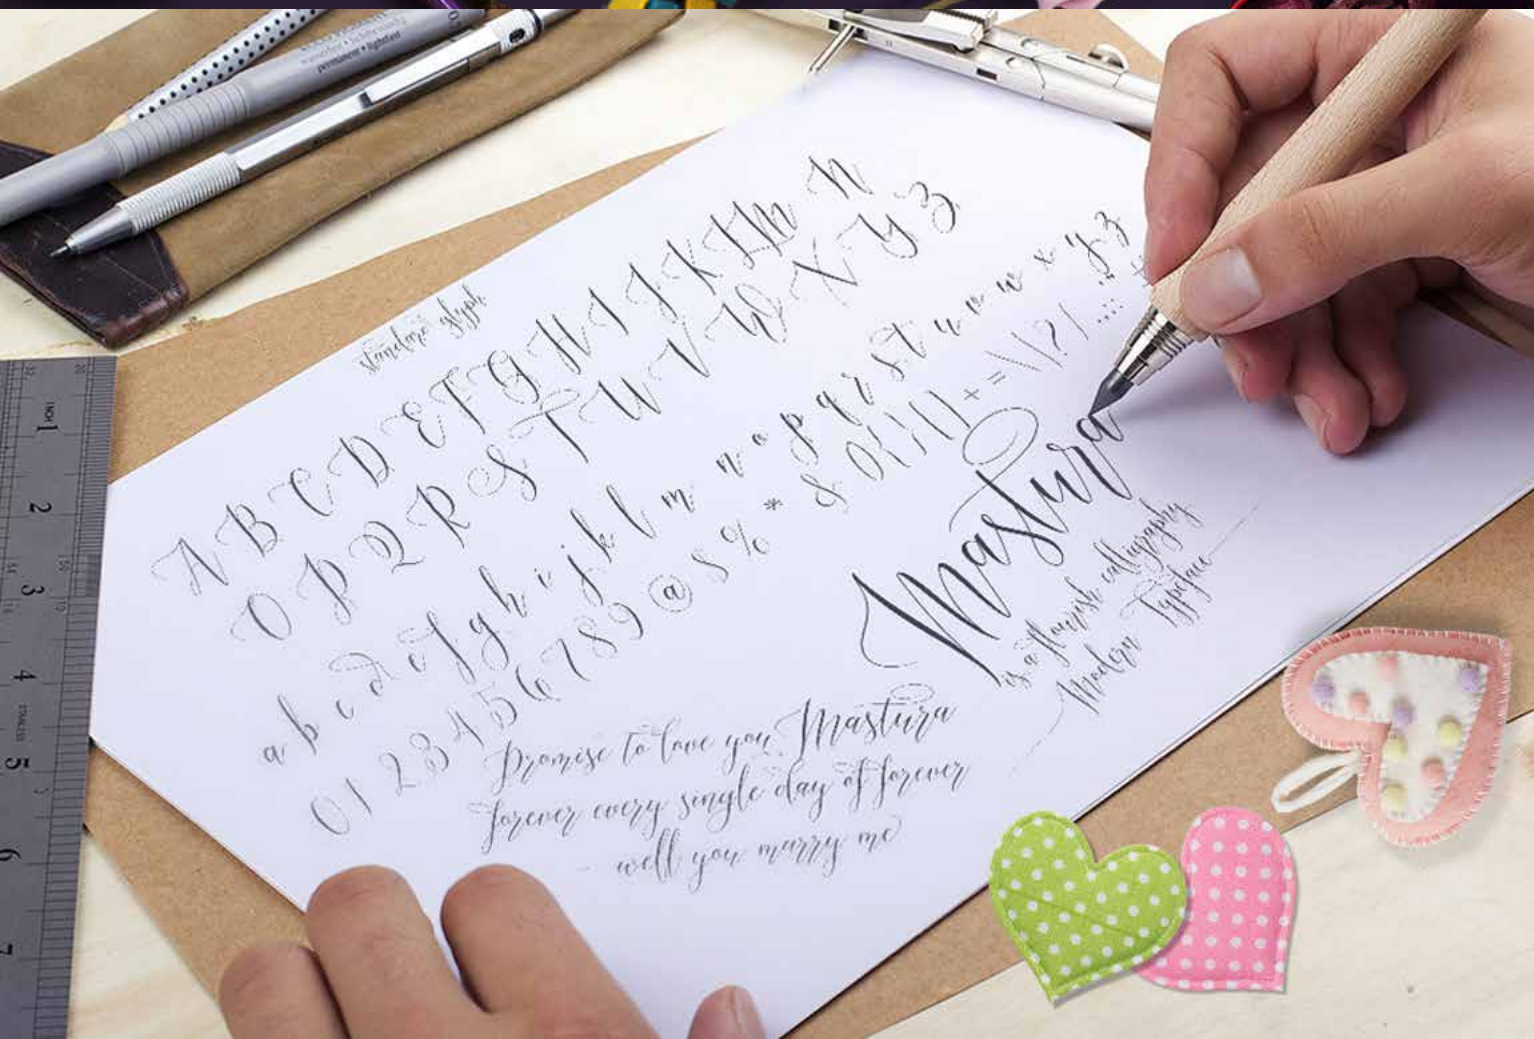 permanent • lightfast
standare glyph
A B C D E F G H I J K L M N
O P Q R S T U V W X Y Z
a b c d e f g h i j k l m n o p q r s t u v w x y z
0 1 2 3 4 5 6 7 8 9 @ $ % * & () {} [] + = \ | ? /
Mastura
is a flourish calligraphy
Modern Typeface
Promise to love you Mastura
forever every single day of forever
well you marry me
INCH 1
2
3
4
5
6
7